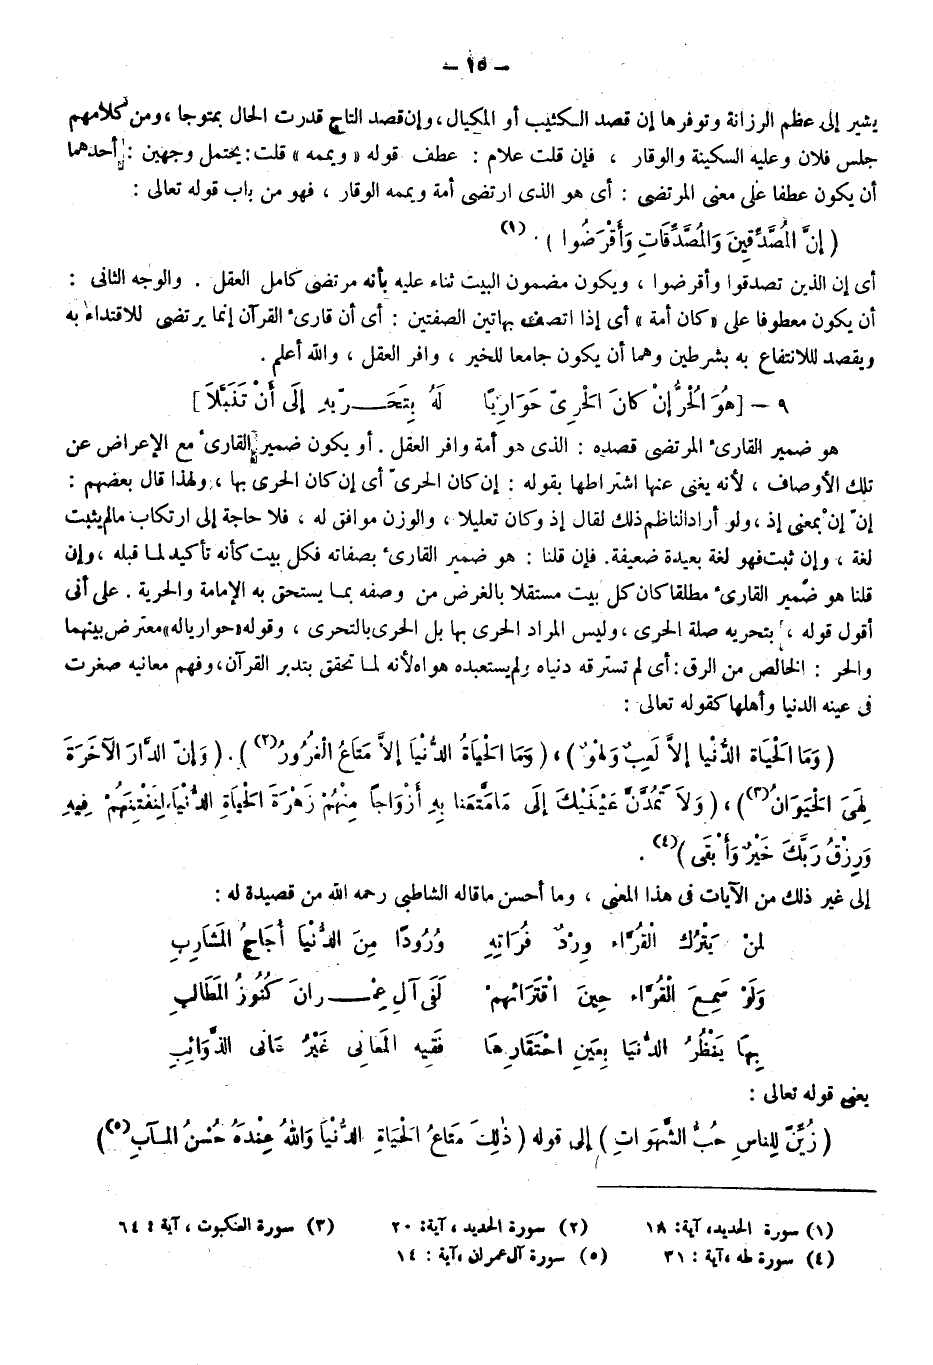 — ١٥ —
يشير إلى عظم الرزانة وتوفرها إن قصد السكثيب أو المكيال ، وإن قصد التاج قدرت الحال بمتوجا ، ومن كلامهم
جلس فلان وعليه السكينة والوقار ، فإن قلت علام : عطف قوله « ويممه » قلت : يحتمل وجهين : أحدهما
أن يكون عطفا على معنى المرتضى : أى هو الذى ارتضى أمة ويممه الوقار ، فهو من باب قوله تعالى :
( إِنَّ الْمُصَّدِّقِينَ وَالْمُصَّدِّقَاتِ وَأَقْرَضُوا ) . (١)
أى إن الذين تصدقوا وأقرضوا ، ويكون مضمون البيت ثناء عليه بأنه مرتضى كامل العقل . والوجه الثانى :
أن يكون معطوفا على « كان أمة » أى إذا اتصف بهاتين الصفتين : أى أن قارىء القرآن إنما يرتضى للاقتداء به
ويقصد للانتفاع به بشرطين وهما أن يكون جامعا للخير ، وافر العقل ، والله أعلم .
٩ — [ هُوَ الْحُرُّ إِنْ كَانَ الْحَرِىَّ حَوَارِيًّا لَهُ بِتَحَـــرِّيهِ إِلَى أَنْ تَنَبَّلَا ]
هو ضمير القارىء المرتضى قصده : الذى هو أمة وافر العقل . أو يكون ضمير القارىء مع الإعراض عن
تلك الأوصاف ، لأنه يغنى عنها اشتراطها بقوله : إن كان الحرىّ أى إن كان الحرى بها ، ولهذا قال بعضهم :
إنّ إنْ بمعنى إذ ، ولو أراد الناظم ذلك لقال إذ وكان تعليلا ، والوزن موافق له ، فلا حاجة إلى ارتكاب مالم يثبت
لغة ، وإن ثبت فهو لغة بعيدة ضعيفة . فإن قلنا : هو ضمير القارىء بصفاته فكل بيت كأنه تأكيد لما قبله ، وإن
قلنا هو ضمير القارىء مطلقا كان كل بيت مستقلا بالغرض من وصفه بما يستحق به الإمامة والحرية . على أنى
أقول قوله ، بتحريه صلة الحرى ، وليس المراد الحرى بها بل الحرى بالتحرى ، وقوله « حواريا له » معترض بينهما
والحر : الخالص من الرق : أى لم تسترقه دنياه ولم يستعبده هواه لأنه لما تحقق بتدبر القرآن ، وفهم معانيه صغرت
فى عينه الدنيا وأهلها كقوله تعالى :
( وَمَا الْحَيَاةُ الدُّنْيَا إِلاَّ لَعِبٌ وَلَهْوٌ ) ، ( وَمَا الْحَيَاةُ الدُّنْيَا إِلاَّ مَتَاعُ الْغُرُورُ (٢) ) . ( وَإِنّ الدَّارَ الآخَرَةَ
لَهِىَ الْحَيَوَانُ (٣) ) ، ( وَلاَ تَمُدَّنَّ عَيْنَيْكَ إِلَى مَامَتَّعْنَا بِهِ أَزْوَاجًا مِنْهُمْ زَهْرَةَ الْحَيَاةِ الدُّنْيَا لِنَفْتِنَهُمْ فِيهِ
وَرِزْقُ رَبِّكَ خَيْرٌ وَأَبْقَى ) (٤) .
إلى غير ذلك من الآيات فى هذا المعنى ، وما أحسن ماقاله الشاطبى رحمه الله من قصيدة له :
لمنْ يَتْرُك الْقُرَّاء وِرْدَ فُرَاتِهِ وُرُودًا مِنَ الدُّنْيَا أُجَاجُ الْمَشَارِبِ
وَلَوْ سَمِعَ الْقُرَّاء حِينَ اقْتَرَائهِمْ لَفَى آلِ عِمْـــرانَ كُنُوزُ الْمَطَالِبِ
بِهَا يَنْظُرُ الدُّنْيَا بِعَينِ احْتَقَارِهَا فَقِيه الْمَعَانِى غَيْرُ عَانى الذَّوَائِبِ
يعنى قوله تعالى :
( زُيِّنَّ لِلناسِ حُبُّ الشَّهَوَاتِ ) إلى قوله ( ذٰلِكَ مَتَاعُ الْحَيَاةِ الدُّنْيَا وَاللهُ عِنْدَهُ حُسْنُ الْمـآبِ (٥) )
(١) سورة الحديد ، آية : ١٨ (٢) سورة الحديد ، آية : ٢٠ (٣) سورة العنكبوت ، آية : ٦٤
(٤) سورة طه ، آية : ٣١ (٥) سورة آل عمران ، آية : ١٤